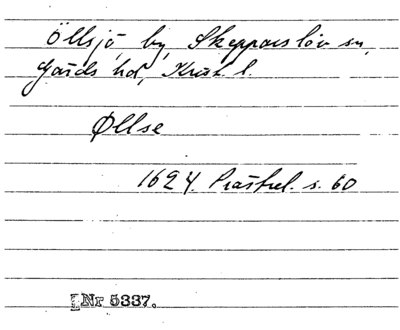 Öllsjö, by, Skepparslöv sn,
Gärds hd, Krist. l.
Øllse
1624. Prästrel. s. 60
Nr 5337.